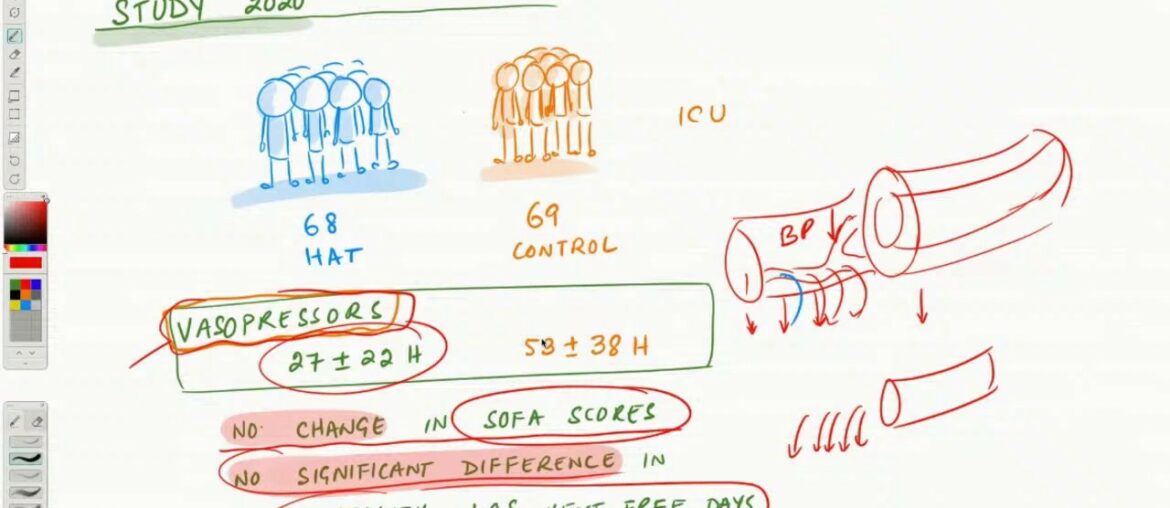 STUDY 2020
ICU
68
HAT
69
CONTROL
BP
VASOPRESSORS
27 ± 22 H
53 ± 38 H
NO CHANGE IN SOFA SCORES
NO SIGNIFICANT DIFFERENCE IN
FREE DAYS